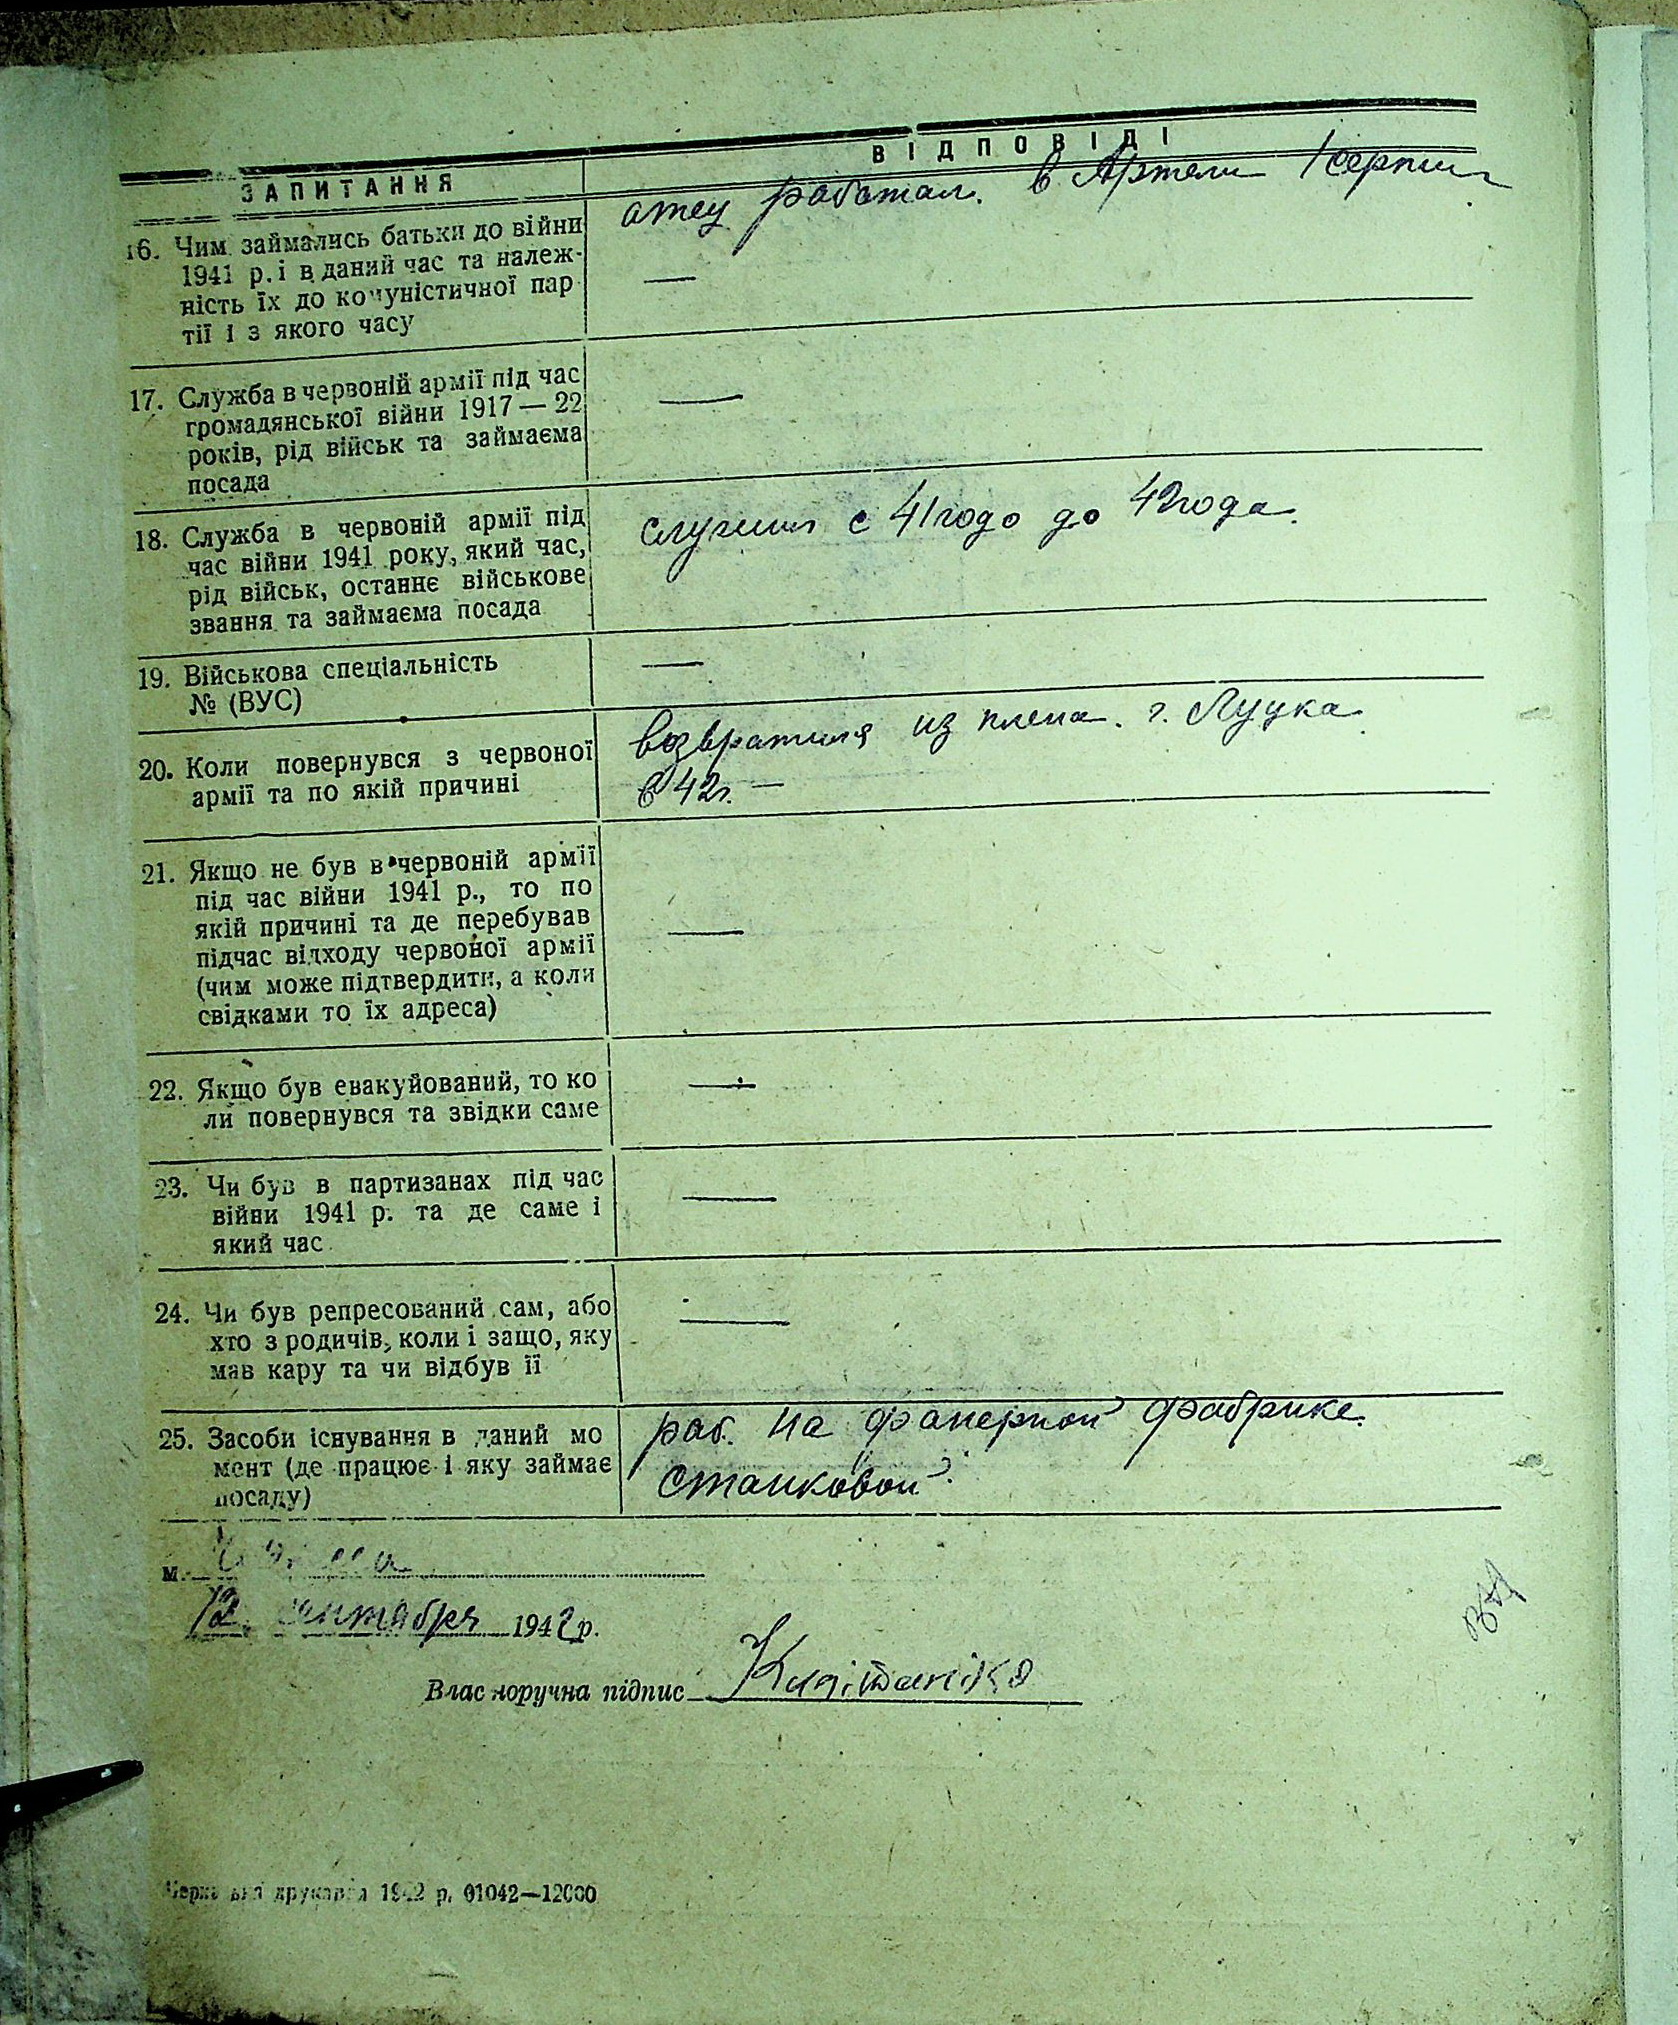 ЗАПИТАННЯ
ВІДПОВІДІ
16. Чим займались батьки до війни
1941 р. і в даний час та належ-
ність їх до комуністичної пар
тії і з якого часу
отец работал. в Артели 1 серпня
—
17. Служба в червоній армії під час
громадянської війни 1917 — 22
років, рід військ та займаєма
посада
—
18. Служба в червоній армії під
час війни 1941 року, який час,
рід військ, останнє військове
звання та займаєма посада
служил с 41 годо до 42 года.
19. Військова спеціальність
№ (ВУС)
—
20. Коли повернувся з червоної
армії та по якій причині
возвратился из плена. г. Луцка
в 42г. —
21. Якщо не був в червоній армії
під час війни 1941 р., то по
якій причині та де перебував
підчас відходу червоної армії
(чим може підтвердити, а коли
свідками то їх адреса)
—
22. Якщо був евакуйований, то ко
ли повернувся та звідки саме
—
23. Чи був в партизанах під час
війни 1941 р. та де саме і
який час
—
24. Чи був репресований сам, або
хто з родичів, коли і защо, яку
мав кару та чи відбув її
—
25. Засоби існування в даний мо
мент (де працює і яку займає
посаду)
раб. на фанерной фабрике.
станковой.
м.
12. сентября 1942 р.
Власноручна підпис
друкарня 1942 р. 01042—12000